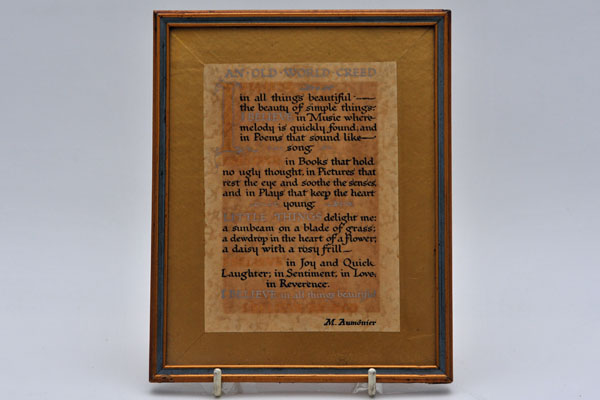 AN OLD WORLD CREED
in all things beautiful —
the beauty of simple things:
in Music where
melody is quickly found; and
in Poems that sound like
song
in Books that hold
no ugly thought, in Pictures that
rest the eye and soothe the senses,
and in Plays that keep the heart
young
LITTLE THINGS delight me:
a sunbeam on a blade of grass;
a dewdrop in the heart of a flower;
a daisy with a rosy frill—
in Joy and Quick
Laughter; in Sentiment, in Love,
in Reverence.
I BELIEVE in all things beautiful
M. Aumônier